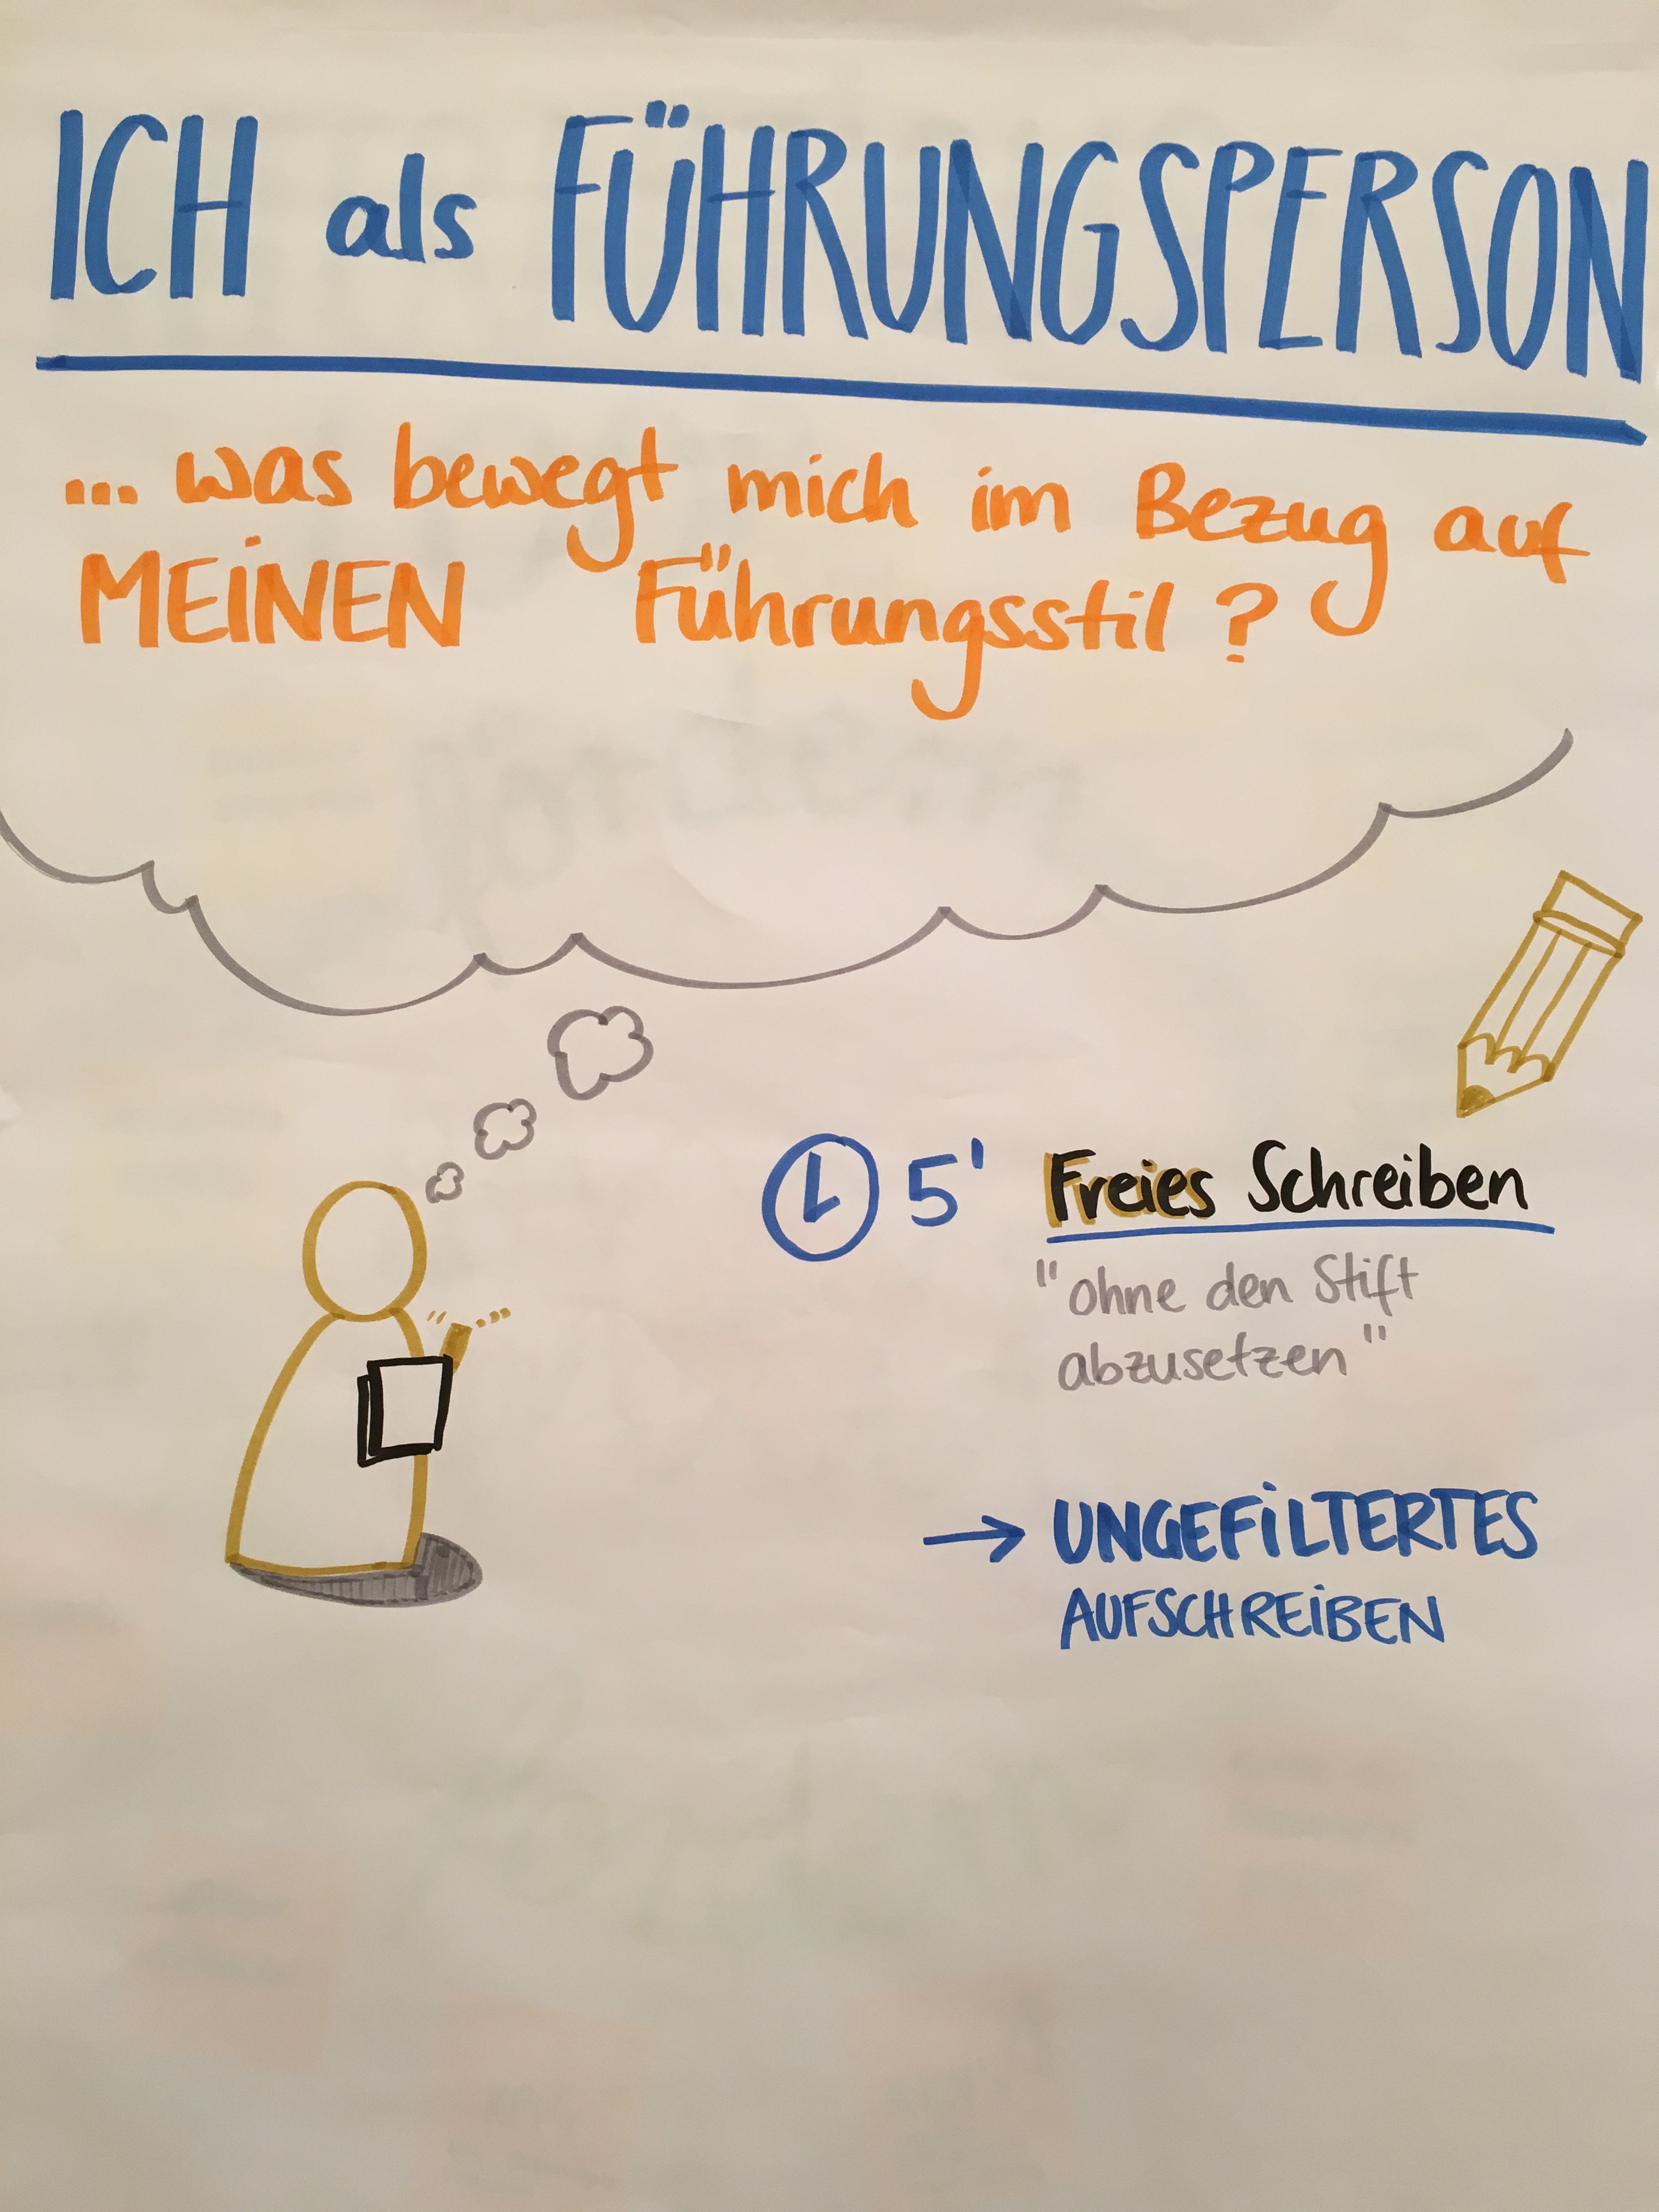 ICH als FÜHRUNGSPERSON
... was bewegt mich im Bezug auf
MEiNEN Führungsstil ?
5' Freies Schreiben
"ohne den Stift
abzusetzen"
→ UNGEFiLTERTES
AUFSCHREiBEN